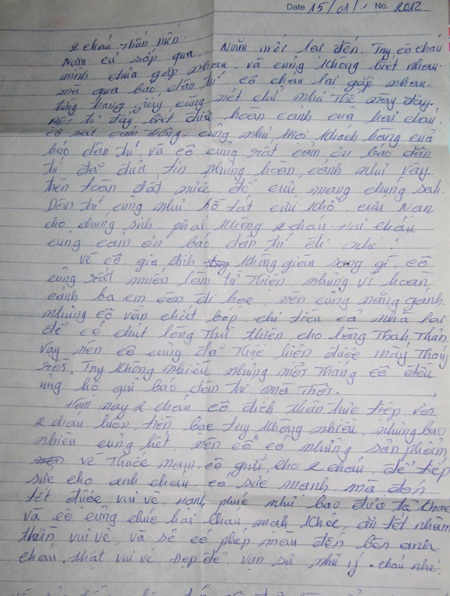 Date 15/01/. No. 2012
2 cháu thân mến.
Năm cũ sắp qua Năm mới lại đến. Tuy cô cháu
mình chưa gặp nhau và cũng không biết nhau.
mà qua báo dân trí cô cháu lại gặp nhau
từng trang giấy cùng nét chữ như thế này đây.
từ đây biết được hoàn cảnh của hai cháu.
cô rất cảm thông. cũng như mọi khách hàng của
báo dân trí và cô cũng rất cảm ơn báo dân
trí đã đưa tin những hoàn cảnh như vậy
trên toàn đất nước để cưu mang chúng sinh
Dân trí cũng như bồ tát cứu khổ cứu nạn
cho chúng sinh phải không 2 cháu. hai cháu
cùng cảm ơn báo dân trí đi nhé!
Về cô, gia đình không giàu sang gì cô
cũng rất muốn làm từ thiện nhưng vì hoàn
cảnh ba em còn đi học, nên cũng nặng gánh.
nhưng cô vẫn chắt bóp chi tiêu cả nhà lại
để có chút lòng thơm thảo cho lòng thanh thản
vậy nên cô cũng đã thực hiện được mấy tháng
rồi. Tuy không nhiều nhưng mỗi tháng cô đều
ủng hộ quỹ báo dân trí mà thôi.
Hôm nay 2 cháu cô đích thân trực tiếp với
2 cháu luôn tiền bạc tuy không nhiều nhưng bao
nhiêu cũng hết nên cô có những sản phẩm
về thuốc nam cô gửi cho 2 cháu. để tiếp
sức cho anh cháu có sức mạnh mà đón
tết được vui vẻ, hạnh phúc như bao đứa trẻ khác
và cô cũng chúc hai cháu mạnh khỏe, ăn tết nhâm
thìn vui vẻ, và sẽ có phép màu đến bên anh
cháu thật vui vẻ đẹp đẽ vạn sự như ý. cháu nhé.